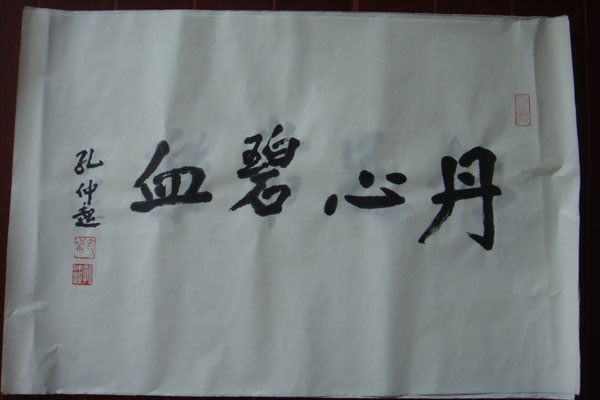 丹心碧血
孔仲起